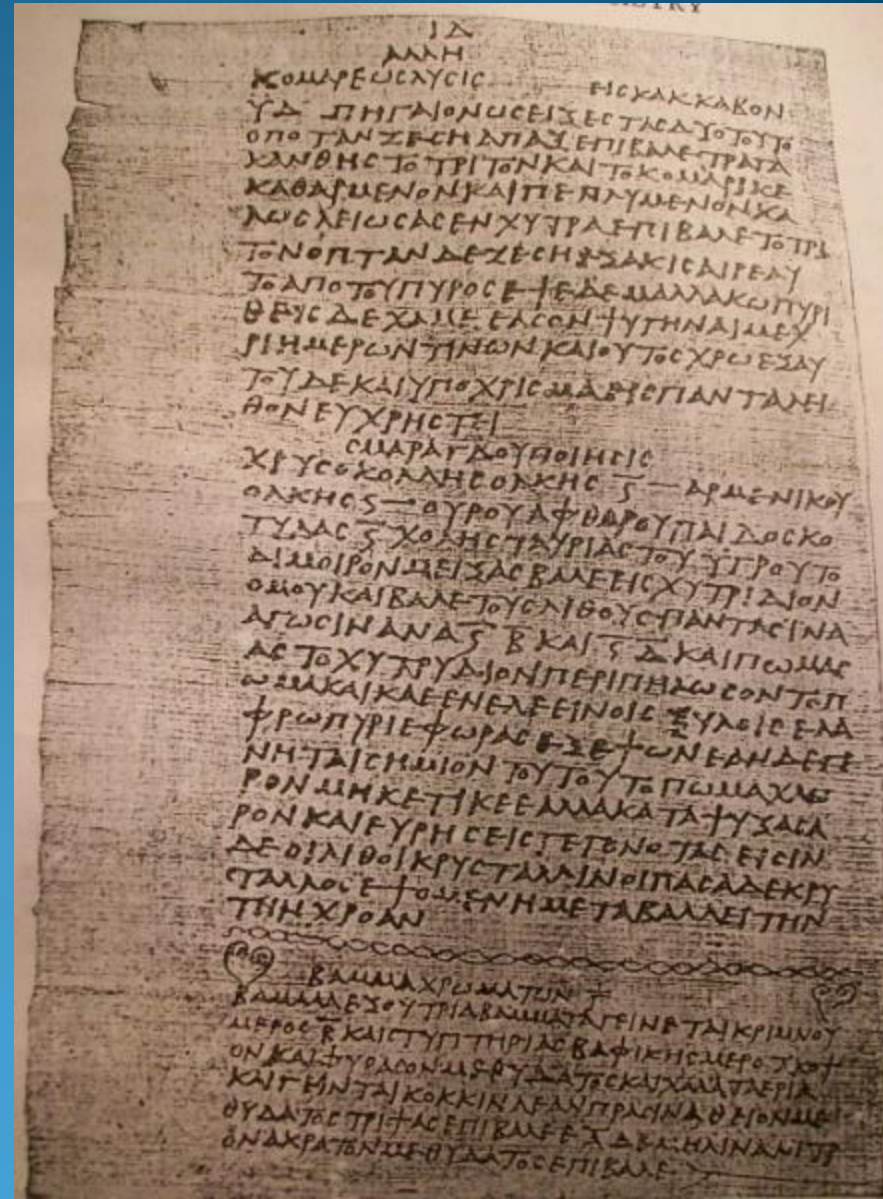 ΙΔ
ΑΛΛΗ
ΚΟΜΑΡΕΩϹΛΥϹΙϹ ΕΙϹΚΑΚΚΑΒΟΝ
ΥΔ ΠΗΓΑΙΟΝΩϹΕΙΞΕϹΤΑϹΔΥΟΤΟΥΤΟ
ΟΠΟΤΑΝΖΕϹΗΑΠΑΞΕΠΙΒΑΛΕΤΡΑΓΑ
ΚΑΝΘΗϹΤΟΤΡΙΤΟΝΚΑΙΤΟΚΟΜΑΡΙΚΕ
ΚΑΘΑΡΜΕΝΟΝΚΑΙΠΕΠΛΥΜΕΝΟΝΚΑ
ΛΩϹΛΕΙΩϹΑϹΕΝΧΥΤΡΑΕΠΙΒΑΛΕΤΟΤΡΙ
ΤΟΝΟΠΤΑΝΔΕΖΕϹΗ ΑΙΡΕΑΥ
ΤΟΑΠΟΤΟΥΠΥΡΟϹΕΨΕΔΕΜΑΛΛΑΚΩΠΥΡΙ
ΘΕΥϹΔΕΧΑΜΕ ΕΑϹΟΝΨΥΓΗΝΑΙΜΕΧ
ΡΙΗΜΕΡΩΝΤΙΝΩΝΚΑΙΟΥΤΟϹΧΡΩΕΞΑΥ
ΤΟΥΔΕΚΑΙΥΠΟΧΡΙϹΜΑ ΠΑΝΤΑΛΕΙ
ΘΟΝΕΥΧΡΗϹΤΕΙ
ϹΜΑΡΑΓΔΟΥΠΟΙΗϹΙϹ
ΧΡΥϹΟΚΟΛΛΗϹΟΛΚΗϹ ϛ — ΑΡΜΕΝΙΚΟΥ
ΟΛΚΗϹ ϛ — ΟΥΡΟΥΑΦΘΑΡΟΥΠΑΙΔΟϹΚΟ
ΤΥΛΑϹ ϛ ΧΟΛΗϹΤΑΥΡΙΑϹΤΟΥΥΓΡΟΥΤΟ
ΔΙΜΟΙΡΟΝΜΕΙΞΑϹΒΑΛΕΕΙϹΧΥΤΡΙΔΙΟΝ
ΟΜΟΥΚΑΙΒΑΛΕΤΟΥϹΛΙΘΟΥϹΠΑΝΤΑϹΙΝΑ
ΑΓΩϹΙΝΑΝΑ ϛ Β ΚΑΙ ϛ Δ ΚΑΙΠΩΜΑϹ
ΑϹΤΟΧΥΤΡΥΔΙΟΝΠΕΡΙΠΗΛΩϹΟΝΤΟΠ
ΩΜΑΚΑΙΚΑΕΕΝΕΛΕΕΙΝΟΙϹΞΥΛΟΙϹΕΛΑ
ΦΡΩΠΥΡΙΕΦΩΡΑϹ ΕΨΩΝΕΑΝΔΕΓΕ
ΝΗΤΑΙϹΗΜΙΟΝΤΟΥΤΟΥΤΟΠΩΜΑΧΛΩ
ΡΟΝΜΗΚΕΤΙΚΕΕΑΛΛΑΚΑΤΑΨΥΞΑϹΑ
ΡΟΝΚΑΙΕΥΡΗϹΕΙϹΓΕΓΟΝΟΤΑϹΕΙϹΙΝ
ΔΕΟΙΛΙΘΟΙΚΡΥϹΤΑΛΛΙΝΟΙΠΑϹΑΔΕΚΡΥ
ϹΤΑΛΛΟϹΕΨΟΜΕΝΗΜΕΤΑΒΑΛΛΕΙΤΗΝ
ΤΗΝΧΡΟΑΝ
ΒΑΜΜΑΧΡΩΜΑΤΩΝ Γ
ΒΑΜΜΑΛΕΞΟΥΤΡΙΑΒΑΜΜΑΤΑΓΕΙΝΕΤΑΙΚΡΙΜΝΟΥ
ΜΕΡΟϹ Β ΚΑΙϹΤΥΠΤΗΡΙΑϹΒΑΦΙΚΗϹΜΕΡΟ ΚΟΨ
ΟΝΚΑΙΦΥΡΑϹΟΝΜΕΘΥΔΑΤΟϹΚΑΙΧΑΛΑΤΑΕΡΙΑ
ΚΑΙΓΕΙΝΤΑΙΚΟΚΚΙΝΑΕΑΝΠΡΑϹΙΝΑΘΕΙΟΝΜΕ
ΘΥΔΑΤΟϹΤΡΙΨΑϹΕΠΙΒΑΛΕΕΑΔΕΜΗΛΙΝΑΝΙΤΡ
ΟΝΑΚΡΑΤΟΝΜΕΘΥΔΑΤΟϹΕΠΙΒΑΛΕ